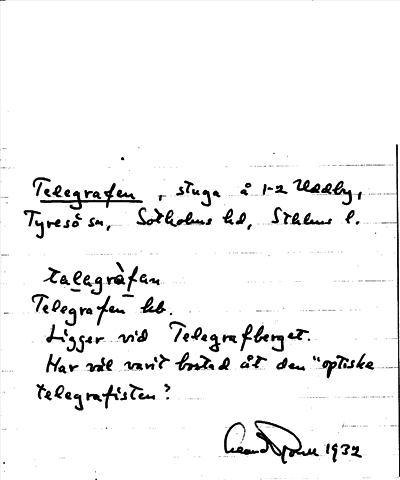 Telegrafen, stuga å 1-2 Uddby,
Tyresö sn, Sotholms hd, Sthlms l.
talagràfan
Telegrafen kb.
Ligger vid Telegrafberget.
Har väl varit bostad åt den "optiske
telegrafisten?
1932